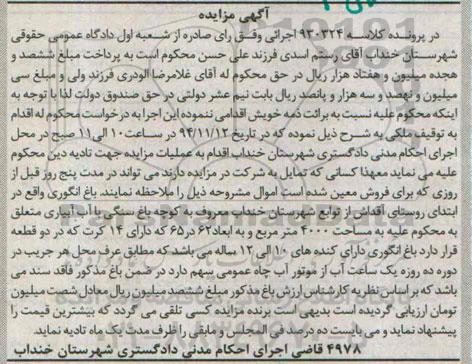 آگهی مزایده
در پرونده کلاسه ۹۳۰۳۲۴ اجرائی وفق رای صادره از شعبه اول دادگاه عمومی حقوقی
شهرستان خنداب آقای رستم اسدی فرزند علی حسن محکوم است به پرداخت مبلغ شصت و
هجده میلیون و هفتاد هزار ریال در حق محکوم له آقای غلامرضا الودری فرزند ولی و مبلغ سی
میلیون و نهصد و سه هزار و پانصد ریال بابت نیم عشر دولتی در حق صندوق دولت لذا با توجه به
اینکه محکوم علیه نسبت به برائت ذمه خویش اقدامی ننموده این اجرا به درخواست محکوم له اقدام
به توقیف ملکی به شرح ذیل نموده که در تاریخ ۹۴/۱۱/۱۲ در ساعت ۱۰ الی ۱۱ صبح در محل
اجرای احکام مدنی دادگستری شهرستان خنداب اقدام به عملیات مزایده جهت تادیه دین محکوم
علیه می نماید معهذا کسانی که تمایل به شرکت در مزایده دارند می تواند در مدت پنج روز قبل از
روزی که برای فروش معین شده است اموال مشروحه ذیل را ملاحظه نمایند. باغ انگوری واقع در
ابتدای روستای آقداش از توابع شهرستان خنداب معروف به کوچه باغ سنگی با آب آبیاری متعلق
به محکوم علیه به مساحت ۴۰۰۰ متر مربع و به ابعاد ۶۲ در ۶۵ که دارای ۱۴ کرت که در دو قطعه
قرار دارد باغ انگوری دارای کنده های ۱۰ الی ۱۲ ساله می باشد که مطابق عرف محل هر جریب در
دوره ده روزه یک ساعت آب از موتور آب چاه عمومی سهم دارد در ضمن باغ مذکور فاقد سند می
باشد که بر اساس نظر یه کارشناس ارزش باغ مذکور مبلغ ششصد میلیون ریال معادل شصت میلیون
تومان ارزیابی گردیده است بدیهی است برنده مزایده کسی تلقی می گردد که بیشترین قیمت را
پیشنهاد نماید و می بایست ده درصد فی المجلس و مابقی را ظرف مدت یک ماه تادیه نماید.
۴۹۷۸ قاضی اجرای احکام مدنی دادگستری شهرستان خنداب